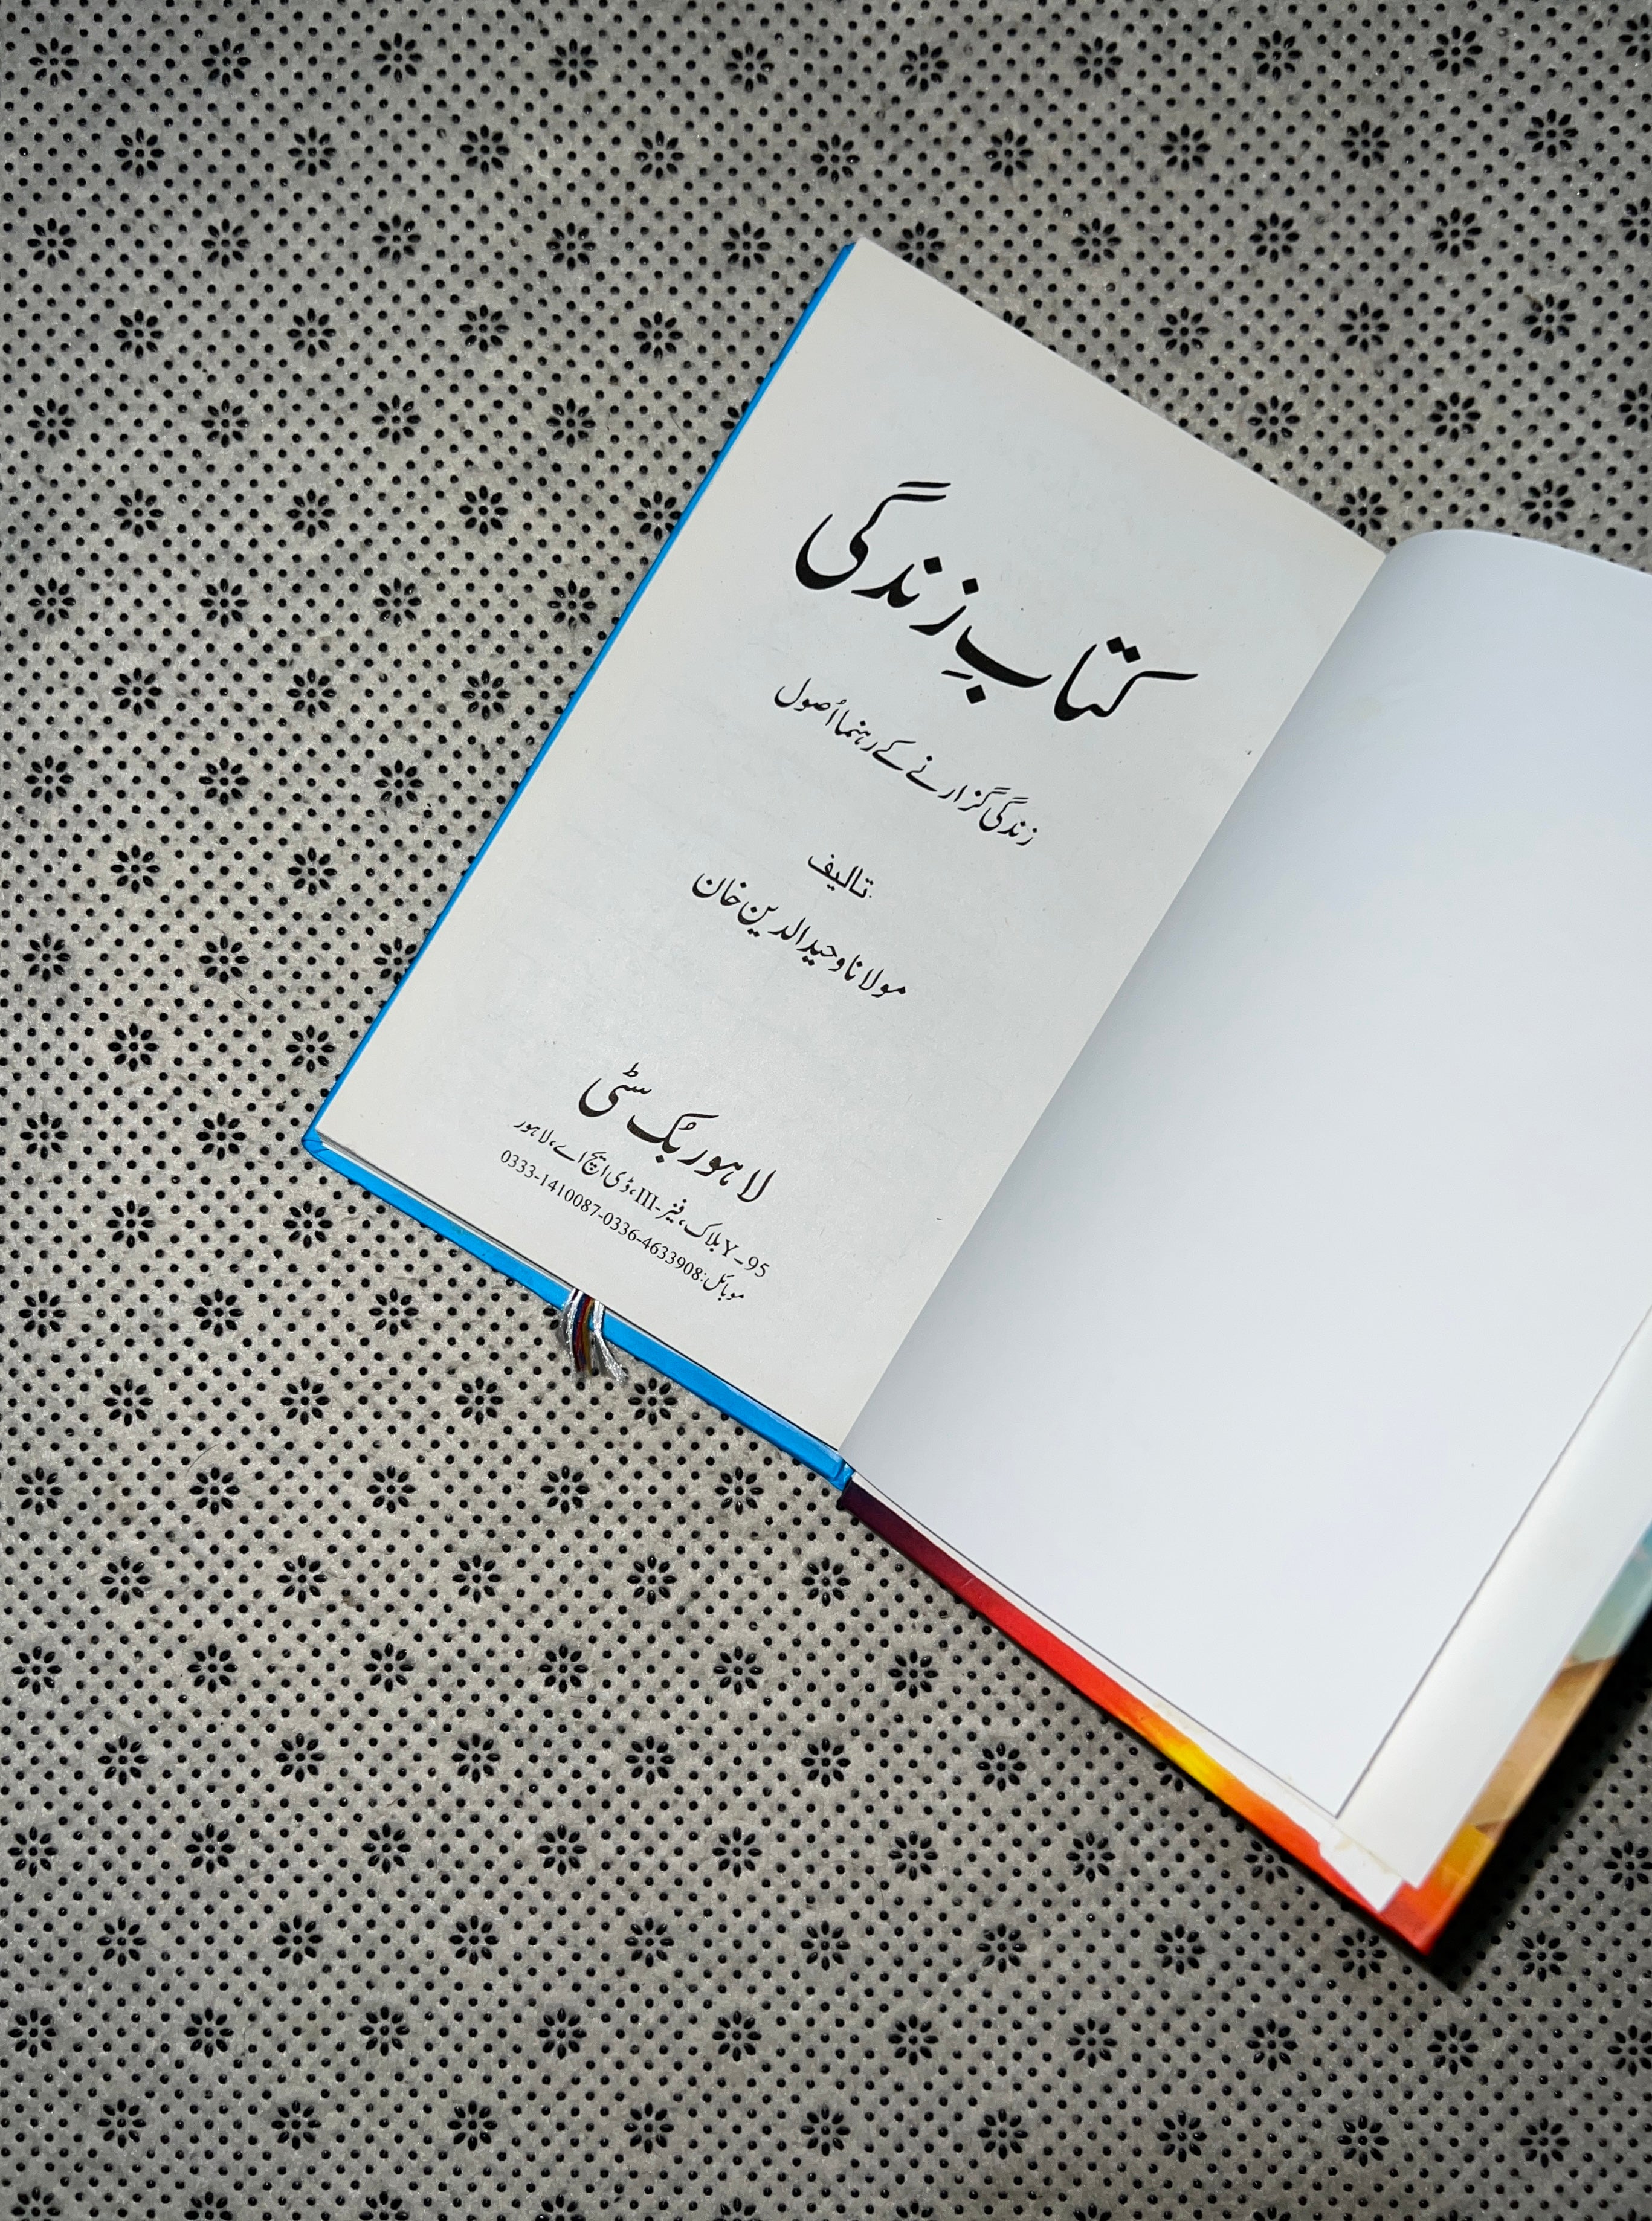 کتابِ زندگی
زندگی گزارنے کے رہنما اُصول
تالیف
مولانا وحیدالدین خان
لاہور بُک سٹی
95_Y بلاک، فیز-III، ڈی ایچ اے، لاہور
موبائل: 0333-1410087-0336-4633908